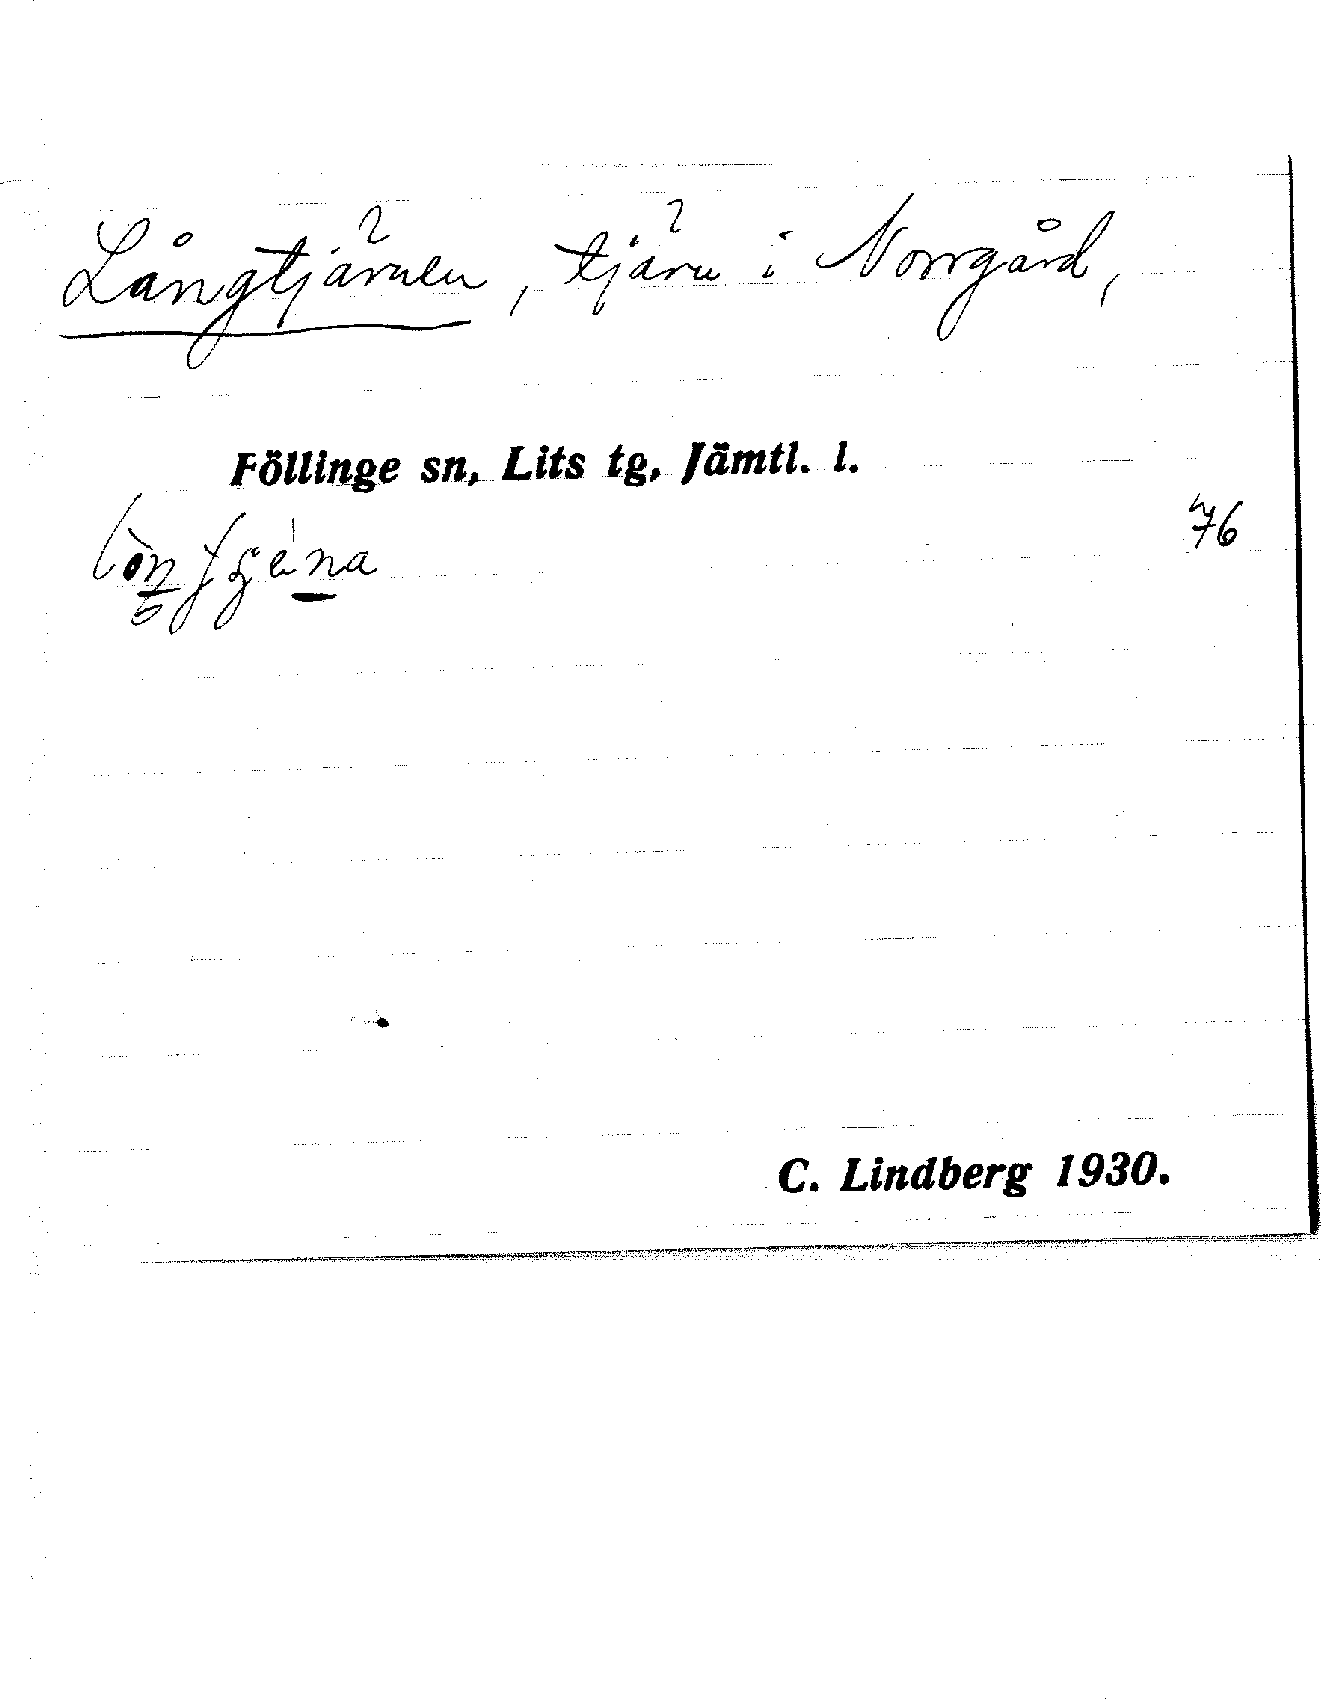 Långtjärnen, tjärn i Norrgård,
Föllinge sn, Lits tg, Jämtl. l.
76
C. Lindberg 1930.